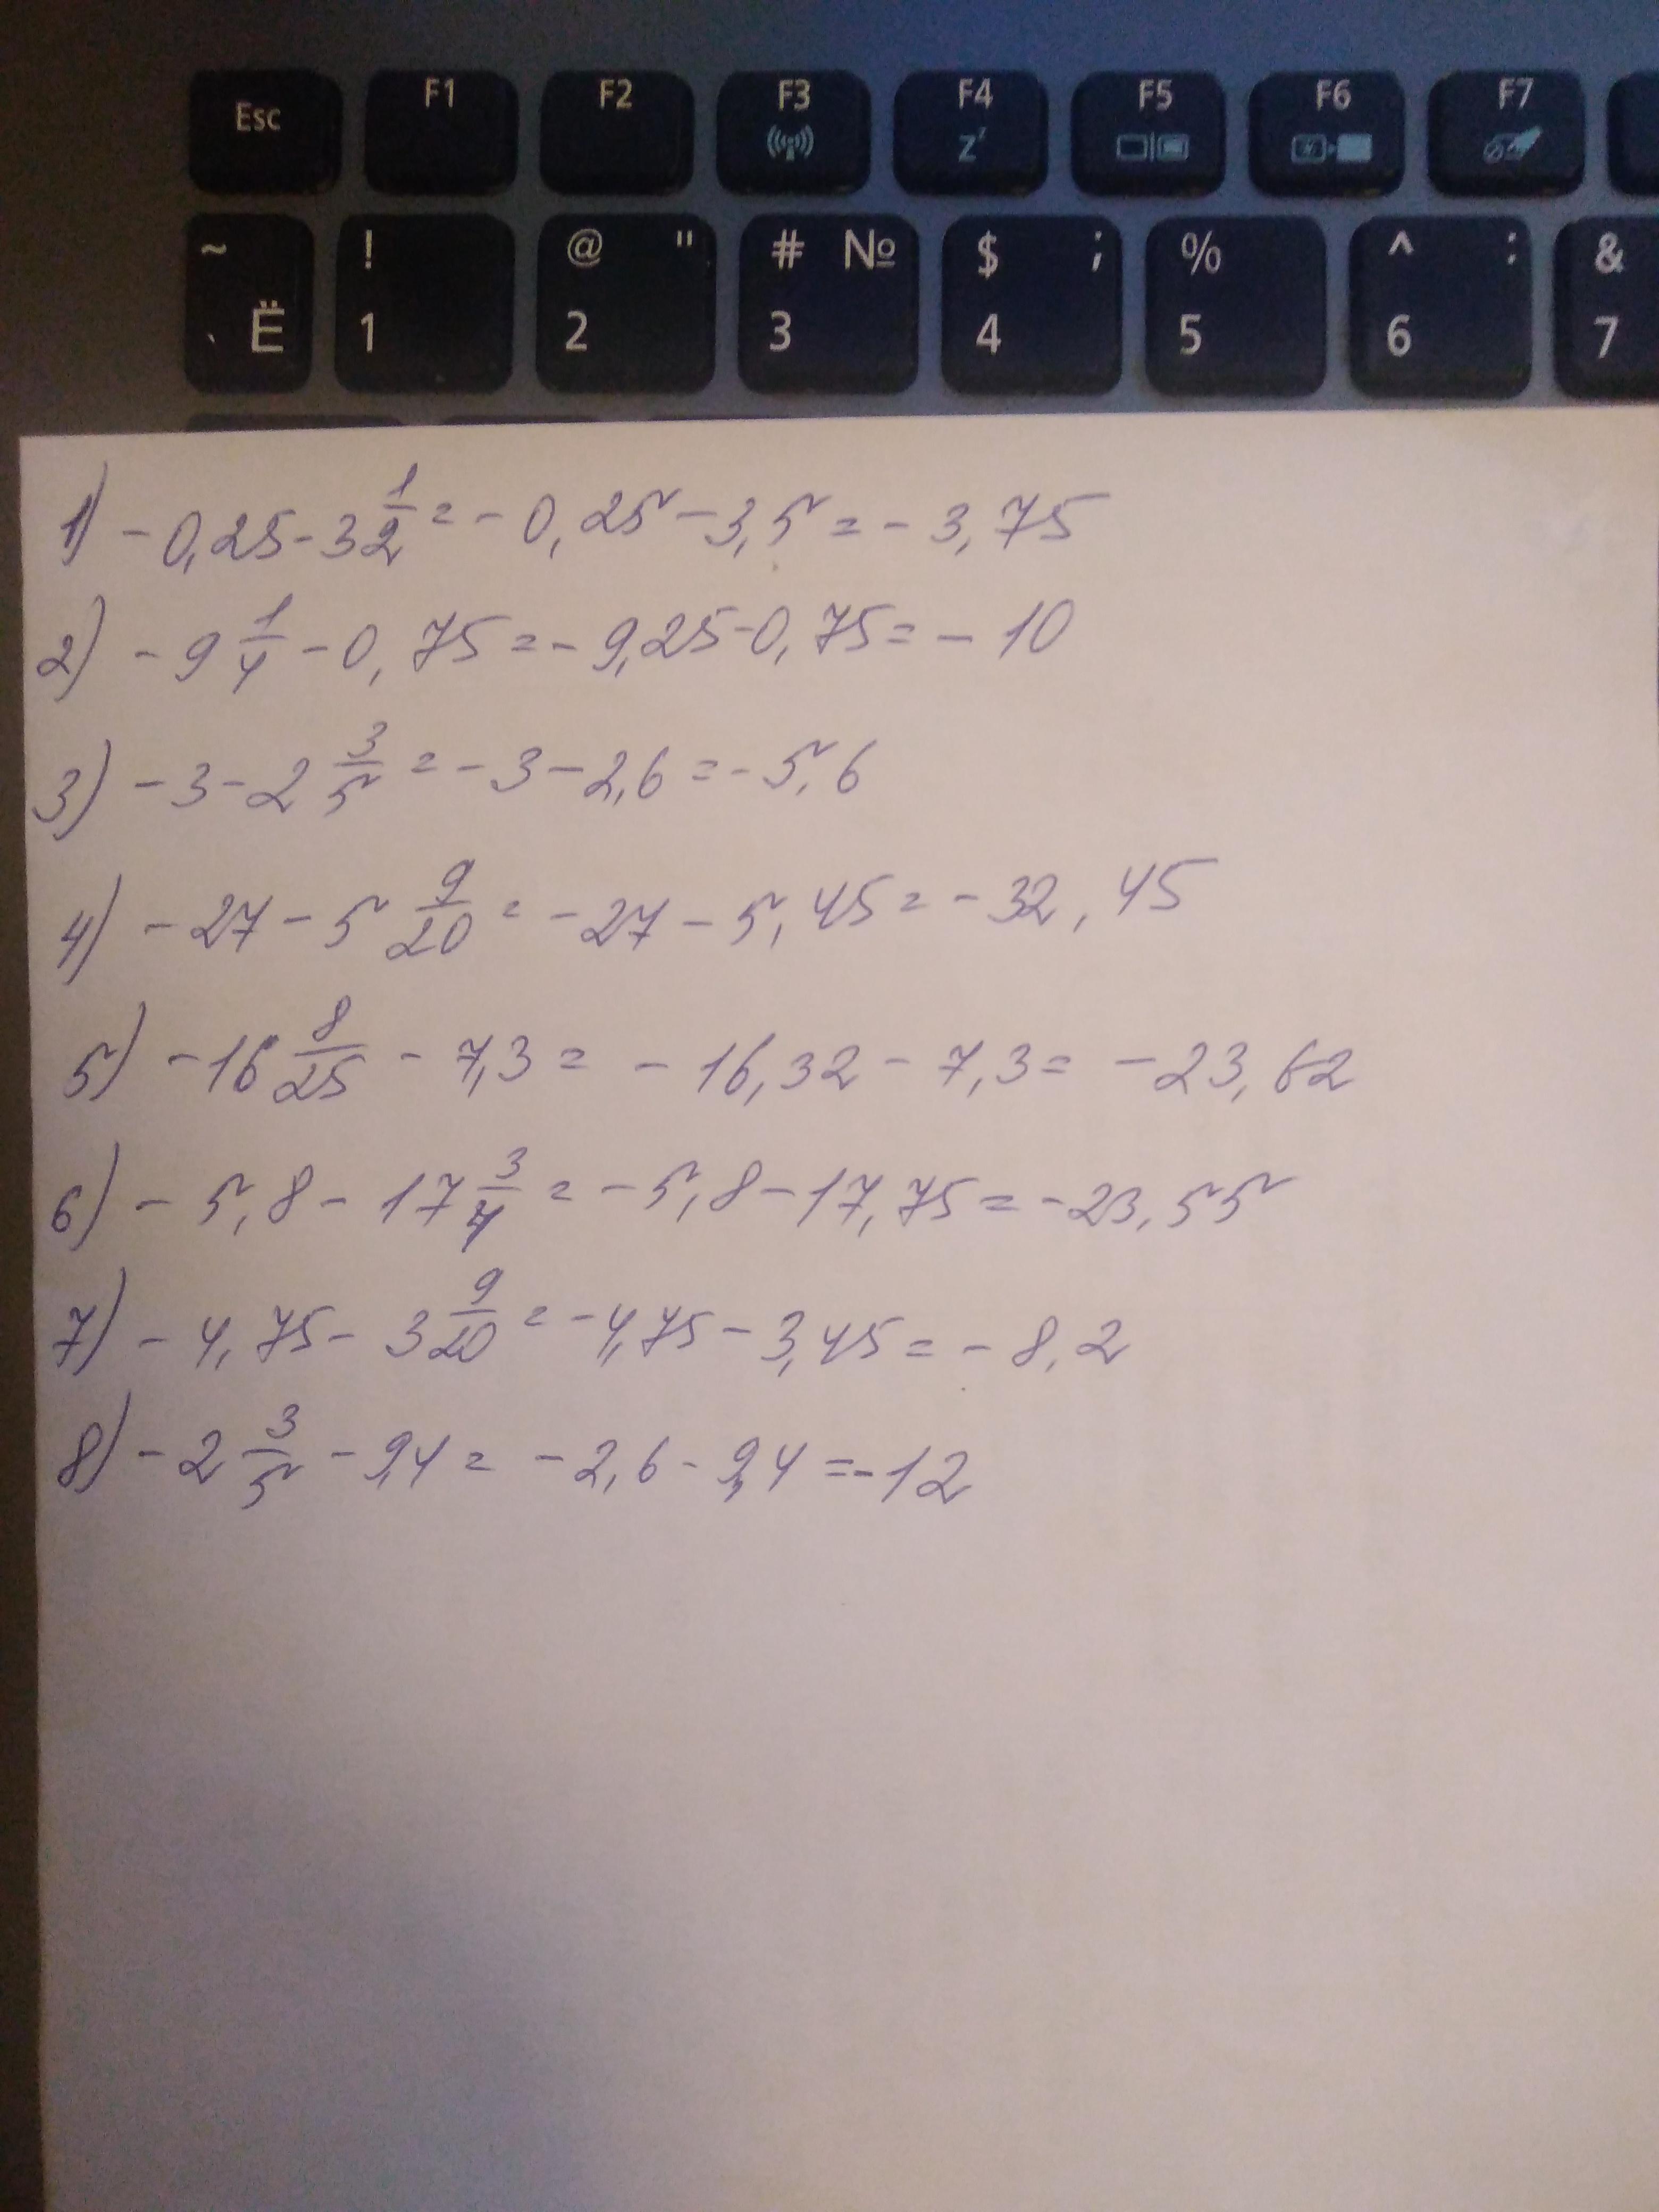 Esc F1 F2 F3 F4 F5 F6 F7
zᶻ
~ ! @ " # № $ ; % ^ : &
` Ё 1 2 3 4 5 6 7
1) - 0,25 - 3 1/2 = - 0,25 - 3,5 = - 3,75
2) - 9 1/4 - 0,75 = - 9,25 - 0,75 = - 10
3) - 3 - 2 3/5 = - 3 - 2,6 = - 5,6
4) - 27 - 5 9/20 = - 27 - 5,45 = - 32,45
5) - 16 8/25 - 7,3 = - 16,32 - 7,3 = - 23,62
6) - 5,8 - 17 3/4 = - 5,8 - 17,75 = - 23,55
7) - 4,75 - 3 9/20 = - 4,75 - 3,45 = - 8,2
8) - 2 3/5 - 9,4 = - 2,6 - 9,4 = - 12